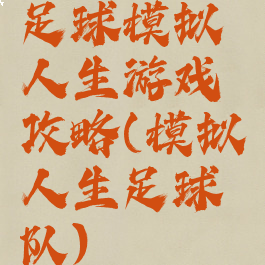 足球模拟
人生游戏
攻略(模拟
人生足球
队)